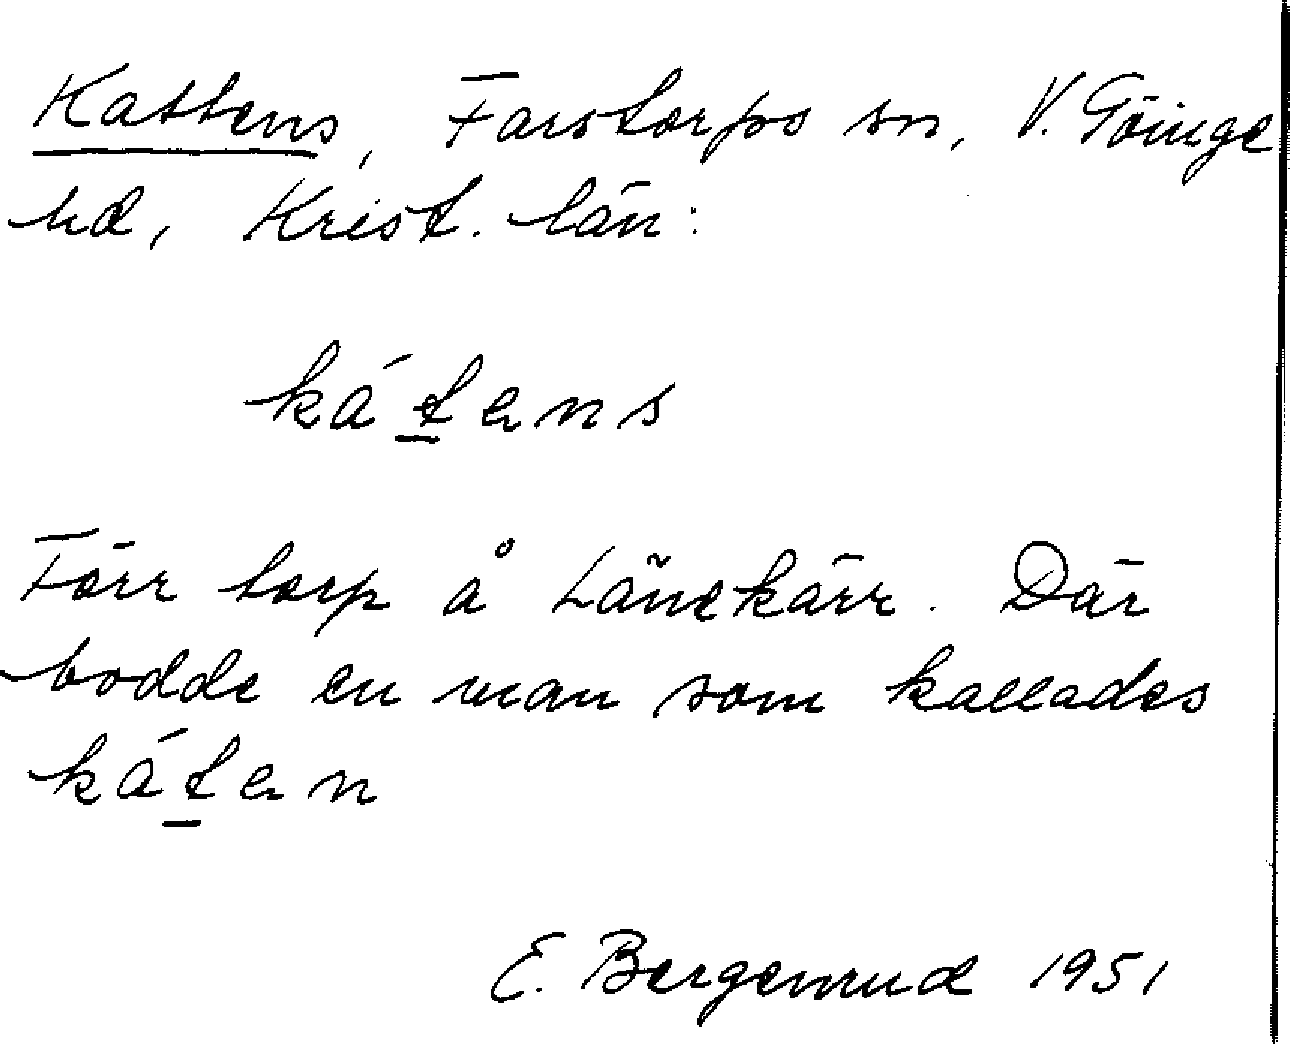 Kattens, Farstorps sn, V. Göinge
hd, Krist. län:
ká t̲ ens
Förr torp å Länekärr. Där
bodde en man som kallades
ká t̲ en
E. Bergenrud 1951